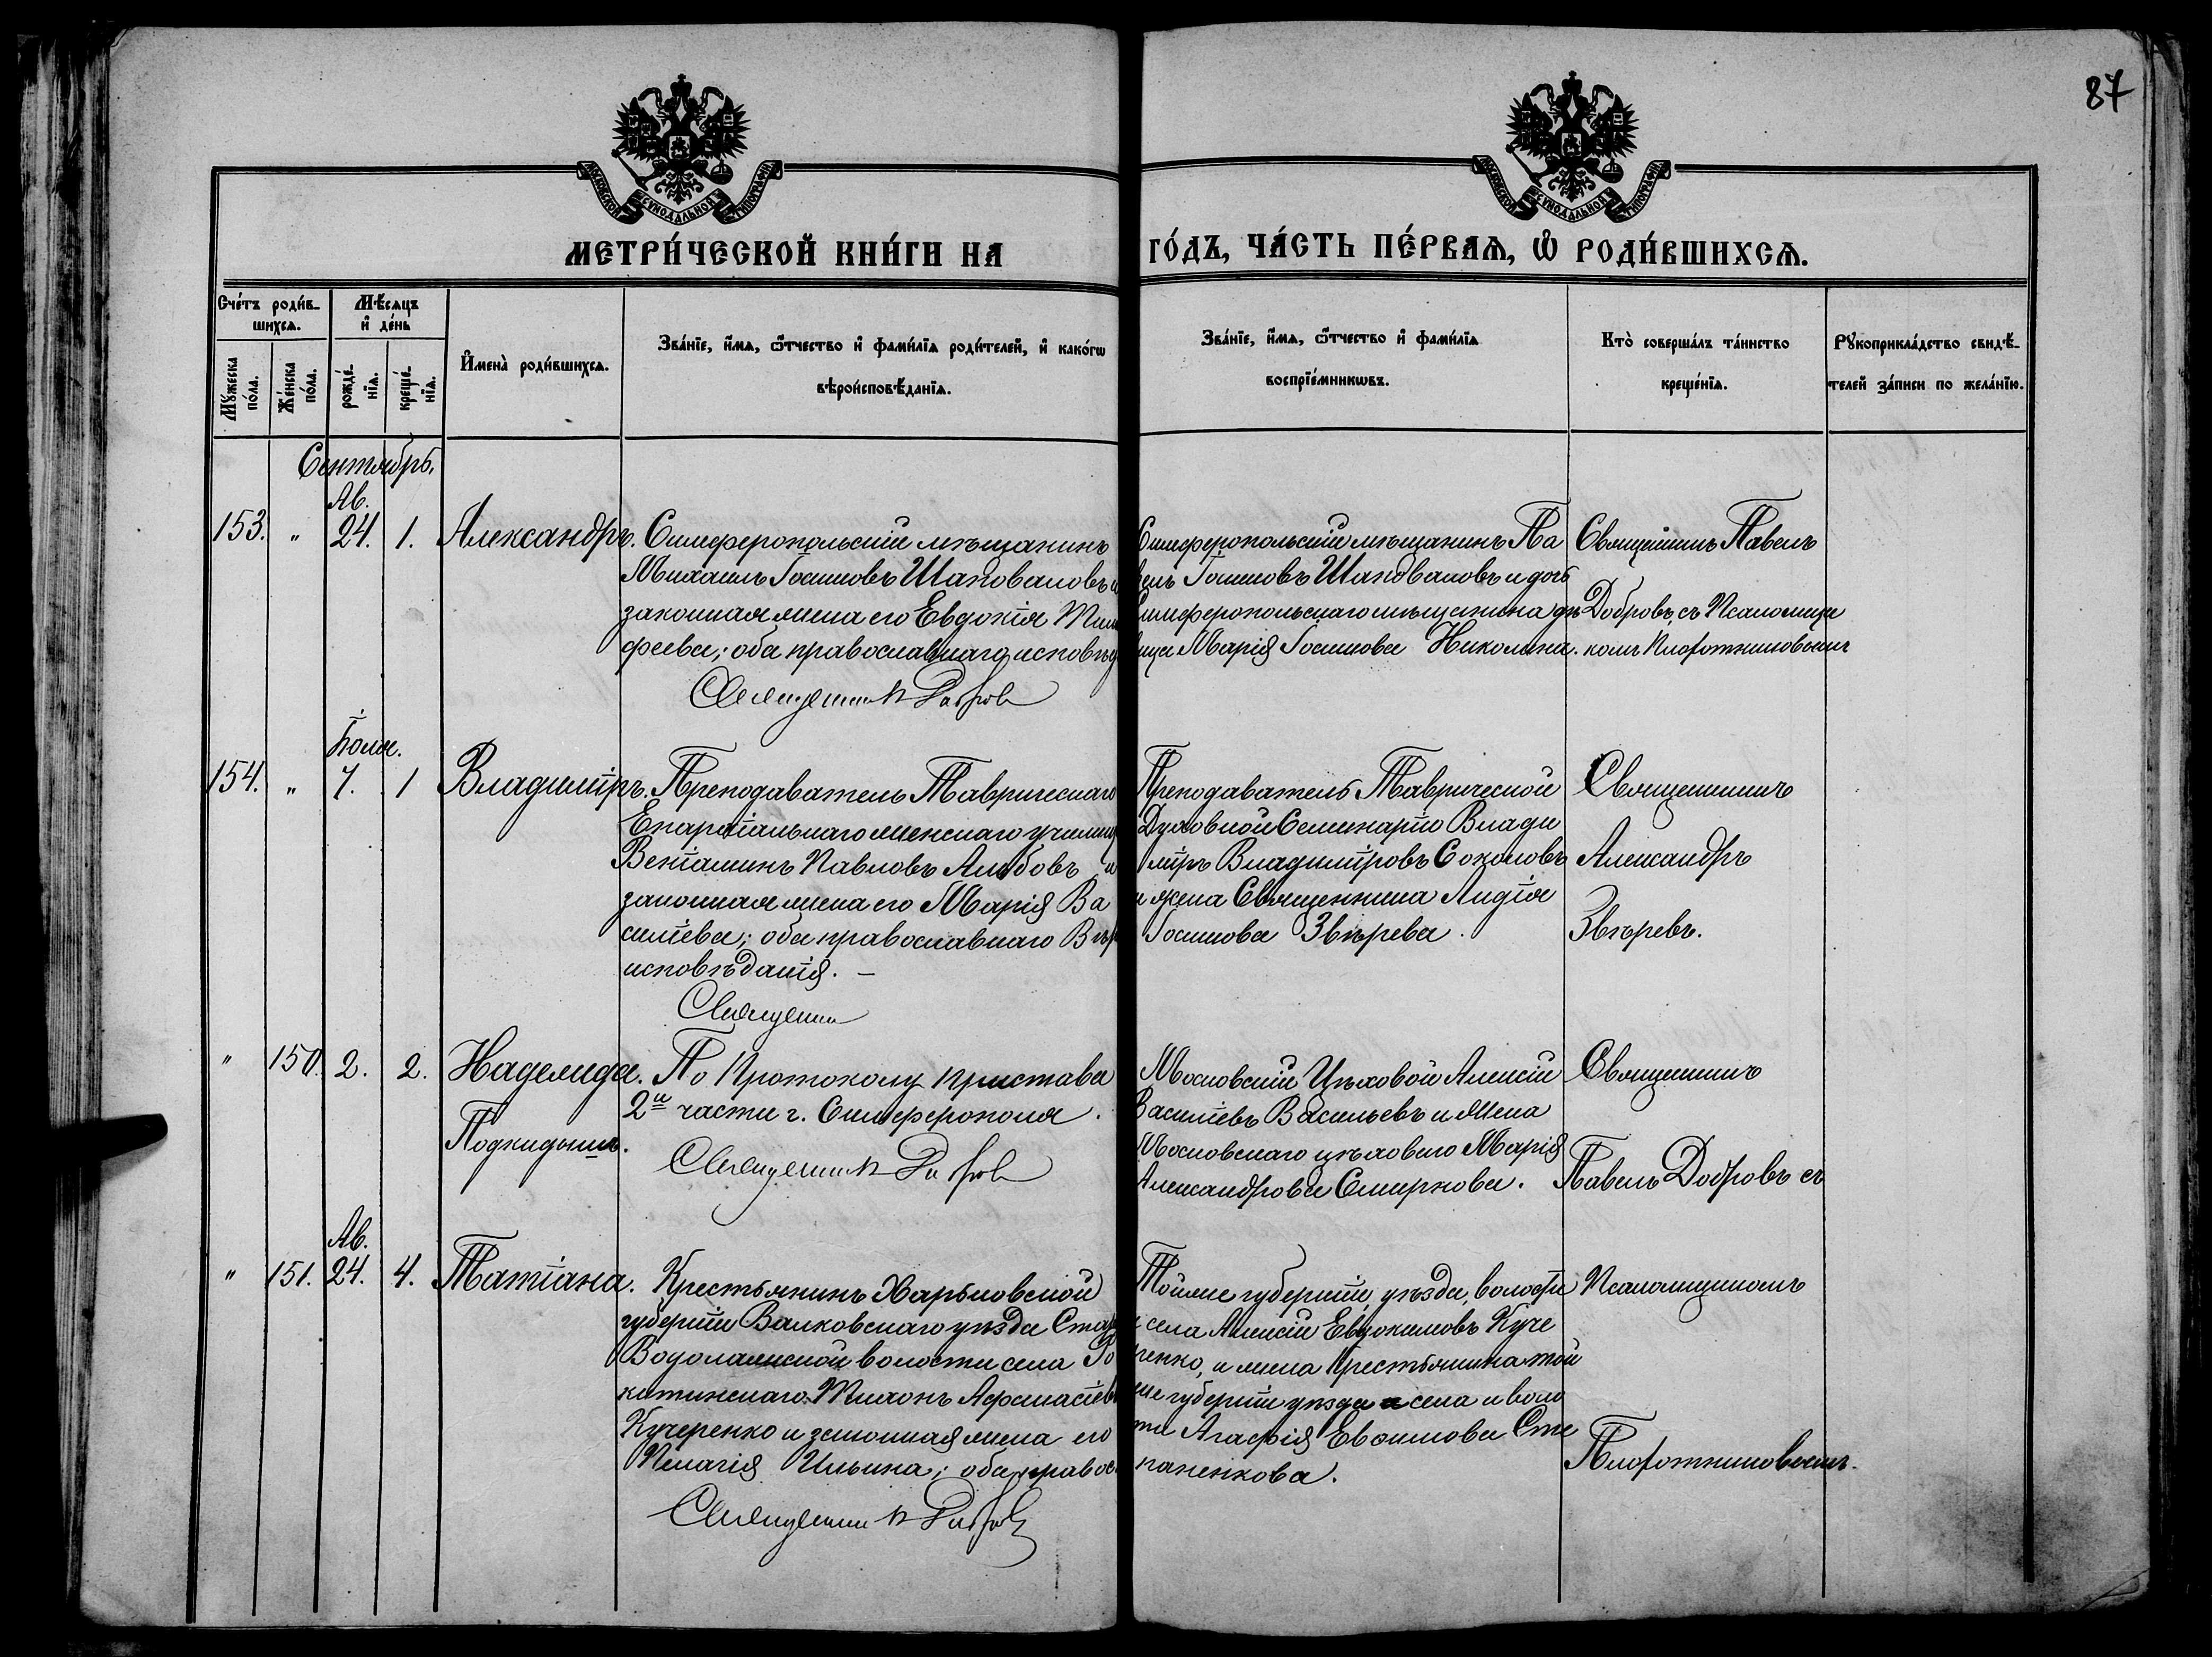 87
МОСКОВСКОЙ СѴНОДАЛЬНОЙ ТИПОГРАФІИ
МОСКОВСКОЙ СѴНОДАЛЬНОЙ ТИПОГРАФІИ
МЕТРИ́ЧЕСКОЙ КНИ́ГИ НА ГО́ДЪ, ЧА́СТЬ ПЕ́РВАѦ, Ѽ РОДИ́ВШИХСѦ.
Сче́тъ роди́в-
шихсѧ.
Мꙋ́жеска
по́ла.
Же́нска
по́ла.
Мѣ́сѧцъ
и҆ де́нь
рожде́-
нїѧ.
креще́-
нїѧ.
И҆мена̀ роди́вшихсѧ.
Зва́нїе, и҆́мѧ, ѻ҆́тчество и҆ фами́лїѧ роди́телей, и҆ како́гѡ
вѣроисповѣ́данїѧ.
Зва́нїе, и҆́мѧ, ѻ҆́тчество и҆ фами́лїѧ
воспрїе́мникѡвъ.
Кто̀ соверша́лъ та́инство
креще́нїѧ.
Рꙋкоприкла́дство свидѣ́-
телей за́писи по жела́нїю.
Сентябрь,
Ав.
153. " 24. 1. Александръ.
Симферопольскій мѣщанинъ
Михаилъ Іоакимовъ Шаповаловъ и
законная жена его Евдокія Тимо
феева; оба православнаго исповѣд
Священникъ Добров
Симферопольскій мѣщанинъ Па
велъ Іоакимовъ Шаповаловъ и дочь
Симферопольскаго мѣщанина дѣ
вица Марія Іоакимова Николина.
Священникъ Павелъ
Добровъ, съ Псаломщи
комъ Плохотниковымъ
Іюля.
154. " 7. 1 Владиміръ.
Преподаватель Таврическаго
Епархіальнаго женскаго училищ
Веніаминъ Павловъ Алябовъ и
законная жена его Марія Ва
силіева; оба православнаго Вѣр
исповѣданія. –
Священник
Преподаватель Таврической
Духовной Семинаріи Влади
міръ Владиміровъ Соколовъ
и жена Священника Лидія
Іоакимова Звѣрева.
Священникъ
Александръ
Звѣревъ.
" 150. 2. 2. Надежда.
Подкидышъ.
По Протоколу Пристава
2й части г. Симферополя.
Священникъ Добров
Московскій Цѣховой Алексій
Василіевъ Васильевъ и Жена
Московскаго цѣховаго Марія
Александрова Смирнова.
Священникъ
Павелъ Добровъ съ
Ав.
" 151. 24. 4. Татіана.
Крестьянинъ Харьковской
губерніи Валковскаго уѣзда Стар
Водолажской волости села Ро
китинскаго Тихонъ Афанасіевъ
Кучеренко и законная жена его
Пелагія Ильина; оба правос
Священникъ Добров
Тойже губерніи, уѣзда, волости
и села Алексій Евдокимовъ Куче
ренко, и жена Крестьянина той
же губерніи уѣзда и села и воло
сти Агафія Евфимова Сте
паненкова.
Псаломщикомъ
Плохотниковымъ.